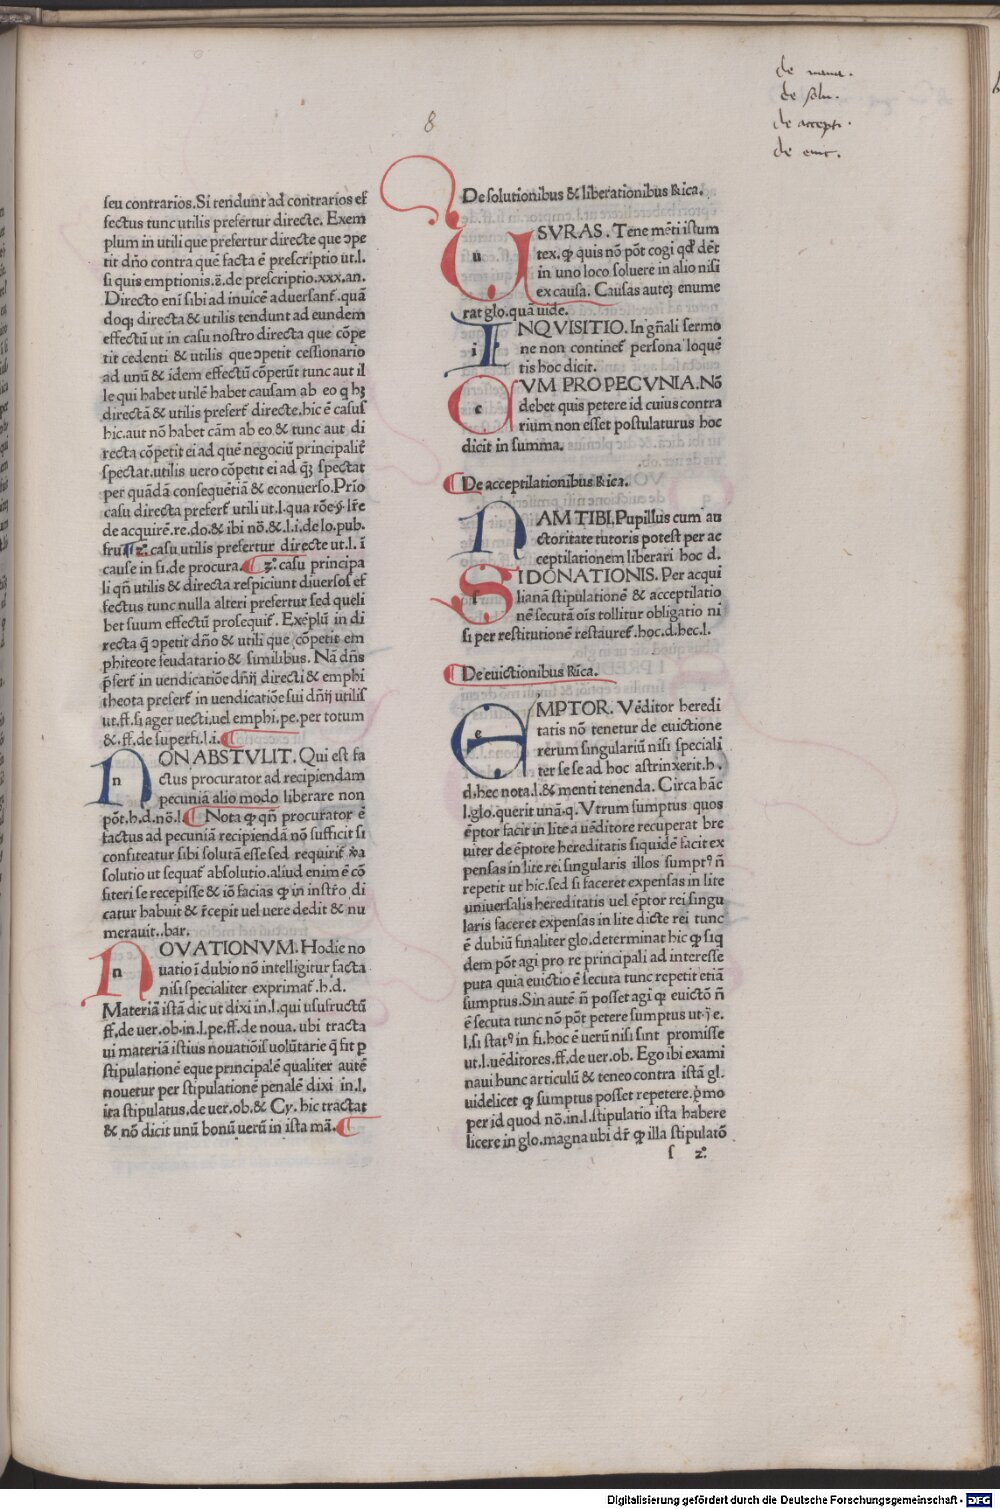 de noua.
de solu.
de accepti.
de euic.
8
seu contrarios. Si tendunt ad contrarios ef
fectus tunc utilis prefertur directe. Exem
plum in utili que prefertur directe que ɔpe
tit dño contra quē facta ē prescriptio ut.l.
si quis emptionis.c̄.de prescriptio.xxx.an.
Directo eni sibi ad inuicē aduersant̄.quā
doq; directa & utilis tendunt ad eundem
effectū ut in casu nostro directa que cōpe
tit cedenti & utilis que ɔpetit cessionario
ad unū & idem effectū cōpetūt tunc aut il
le qui habet utilē habet causam ab eo q hȝ
directā & utilis prefert̄ directe.hic ē casus
hic.aut nō habet cām ab eo & tunc aut di
recta cōpetit ei ad quē negociū principalit̄
spectat.utilis uero cōpetit ei ad quȝ spectat
per quādā consequētiā & econuerso. Prio
casu directa prefert̄ utili ut.l.qua rōe.§.lr̄e
de acquirē.re.do.& ibi nō.& .l.i.de lo.pub.
fru. z.° casu utilis prefertur directe ut.l. ī
cause in fi.de procura. z.° casu principa
li qn̄ utilis & directa respiciunt diuersos ef
fectus tunc nulla alteri prefertur sed queli
bet suum effectū prosequit̄. Exēplū in di
recta q̄ ɔpetit dño & utili que cōpetit em
phiteote feudatario & similibus. Nā dn̄s
p̄fert̄ in uendicatiōe dn̄ij directi & emphi
theota prefert̄ in uendicatiōe sui dn̄ij utilis
ut.ff.si ager uecti.uel emphi.pe.per totum
& .ff.de superfi.l.i.
n ON ABSTVLIT. Qui est fa
ctus procurator ad recipiendam
pecuniā alio modo liberare non
pōt.h.d.nō.l. Nota ꝙ qn̄ procurator ē
factus ad pecuniā recipiendā nō sufficit si
confiteatur sibi solutā esse sed requirit̄ ūa
solutio ut sequat̄ absolutio.aliud enim ē cō
fiteri se recepisse & iō facias ꝙ in instr̄o di
catur habuit & r̄cepit uel uere dedit & nu
merauit..bar.
n OVATIONVM. Hodie no
uatio ī dubio nō intelligitur facta
nisi specialiter exprimat̄.h.d.
Materiā istā dic ut dixi in.l.qui usufructū
ff.de uer.ob.in.l.pe.ff.de noua. ubi tracta
ui materiā istius nouatiōis uolūtarie q̄ fit p
stipulationē eque principalē qualiter autē
nouetur per stipulationē penalē dixi in.l.
ita stipulatus.de uer.ob.& Cy. hic tractat
& nō dicit unū bonū uerū in ista mā.
De solutionibus & liberationibus Rica.
u SVRAS. Tene mēti istum
tex. ꝙ quis nō pōt cogi qd̄ dēt
in uno loco soluere in alio nisi
ex causa. Causas auteȝ enume
rat glo.quā uide.
i NQVISITIO. In gn̄ali sermo
ne non continet̄ persona loquē
tis hoc dicit.
c VM PRO PECVNIA. Nō
debet quis petere id cuius contra
rium non esset postulaturus hoc
dicit in summa.
De acceptilationibus Rica.
NAM TIBI. Pupillus cum au
ctoritate tutoris potest per ac
ceptilationem liberari hoc d.
s I DONATIONIS. Per acqui
lianā stipulationē & acceptilatio
nē secutā ois tollitur obligatio ni
si per restitutionē restauret̄.hoc.d.hec.l.
De euictionibus Rīca.
e MPTOR. Vēditor heredi
tatis nō tenetur de euictione
rerum singulariū nisi speciali
ter se se ad hoc astrinxerit.h.
d.hec nota.l.& menti tenenda. Circa hāc
l.glo.querit unā.q. Vtrum sumptus quos
ēptor facit in lite a uēditore recuperat bre
uiter de ēptore hereditatis siquidē facit ex
pensas in lite rei singularis illos sumpt⁹ n̄
repetit ut hic.sed si faceret expensas in lite
uniuersalis hereditatis uel ēptor rei singu
laris faceret expensas in lite dicte rei tunc
ē dubiū finaliter glo.determinat hic ꝙ siq
dem pōt agi pro re principali ad interesse
puta quia euictio ē secuta tunc repetit etiā
sumptus. Sin autē n̄ posset agi ꝙ euictō n̄
ē secuta tunc nō pōt petere sumptus ut.j e.
l.si stat⁹ in fi.hoc ē uerū nisi sint promisse
ut.l.uēditores.ff.de uer.ob. Ego ibi exami
naui hunc articulū & teneo contra istā gl.
uidelicet ꝙ sumptus posset repetere.p̄mo
per id quod nō.in.l.stipulatio ista habere
licere in glo.magna ubi dr̄ ꝙ illa stipulatō
s z.°
Digitalisierung gefördert durch die Deutsche Forschungsgemeinschaft - DFG